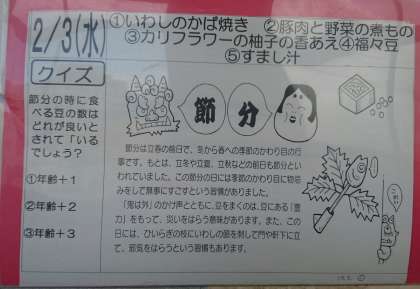 2/3(水)
①いわしのかば焼き ②豚肉と野菜の煮もの
③カリフラワーの柚子の香あえ④福々豆
⑤すまし汁
クイズ
節分の時に食
べる豆の数は
どれが良いと
されて「いる
でしょう?
①年齢+1
②年齢+2
③年齢+3
節分
節分は立春の前日で、冬から春への季節のかわり目の行
事です。もとは、立冬や立夏、立秋などの前日も節分とい
われていました。この節分の日には季節のかわり目に物忌
みをして無事にすごすという習慣がありました。
「鬼は外」のかけ声とともに、豆をまくのは、豆にある「霊
力」をもって、災いをはらう意味があります。また、この
日には、ひいらぎの枝にいわしの頭を刺して門や軒下に立
て、邪気をはらうという習慣もあります。